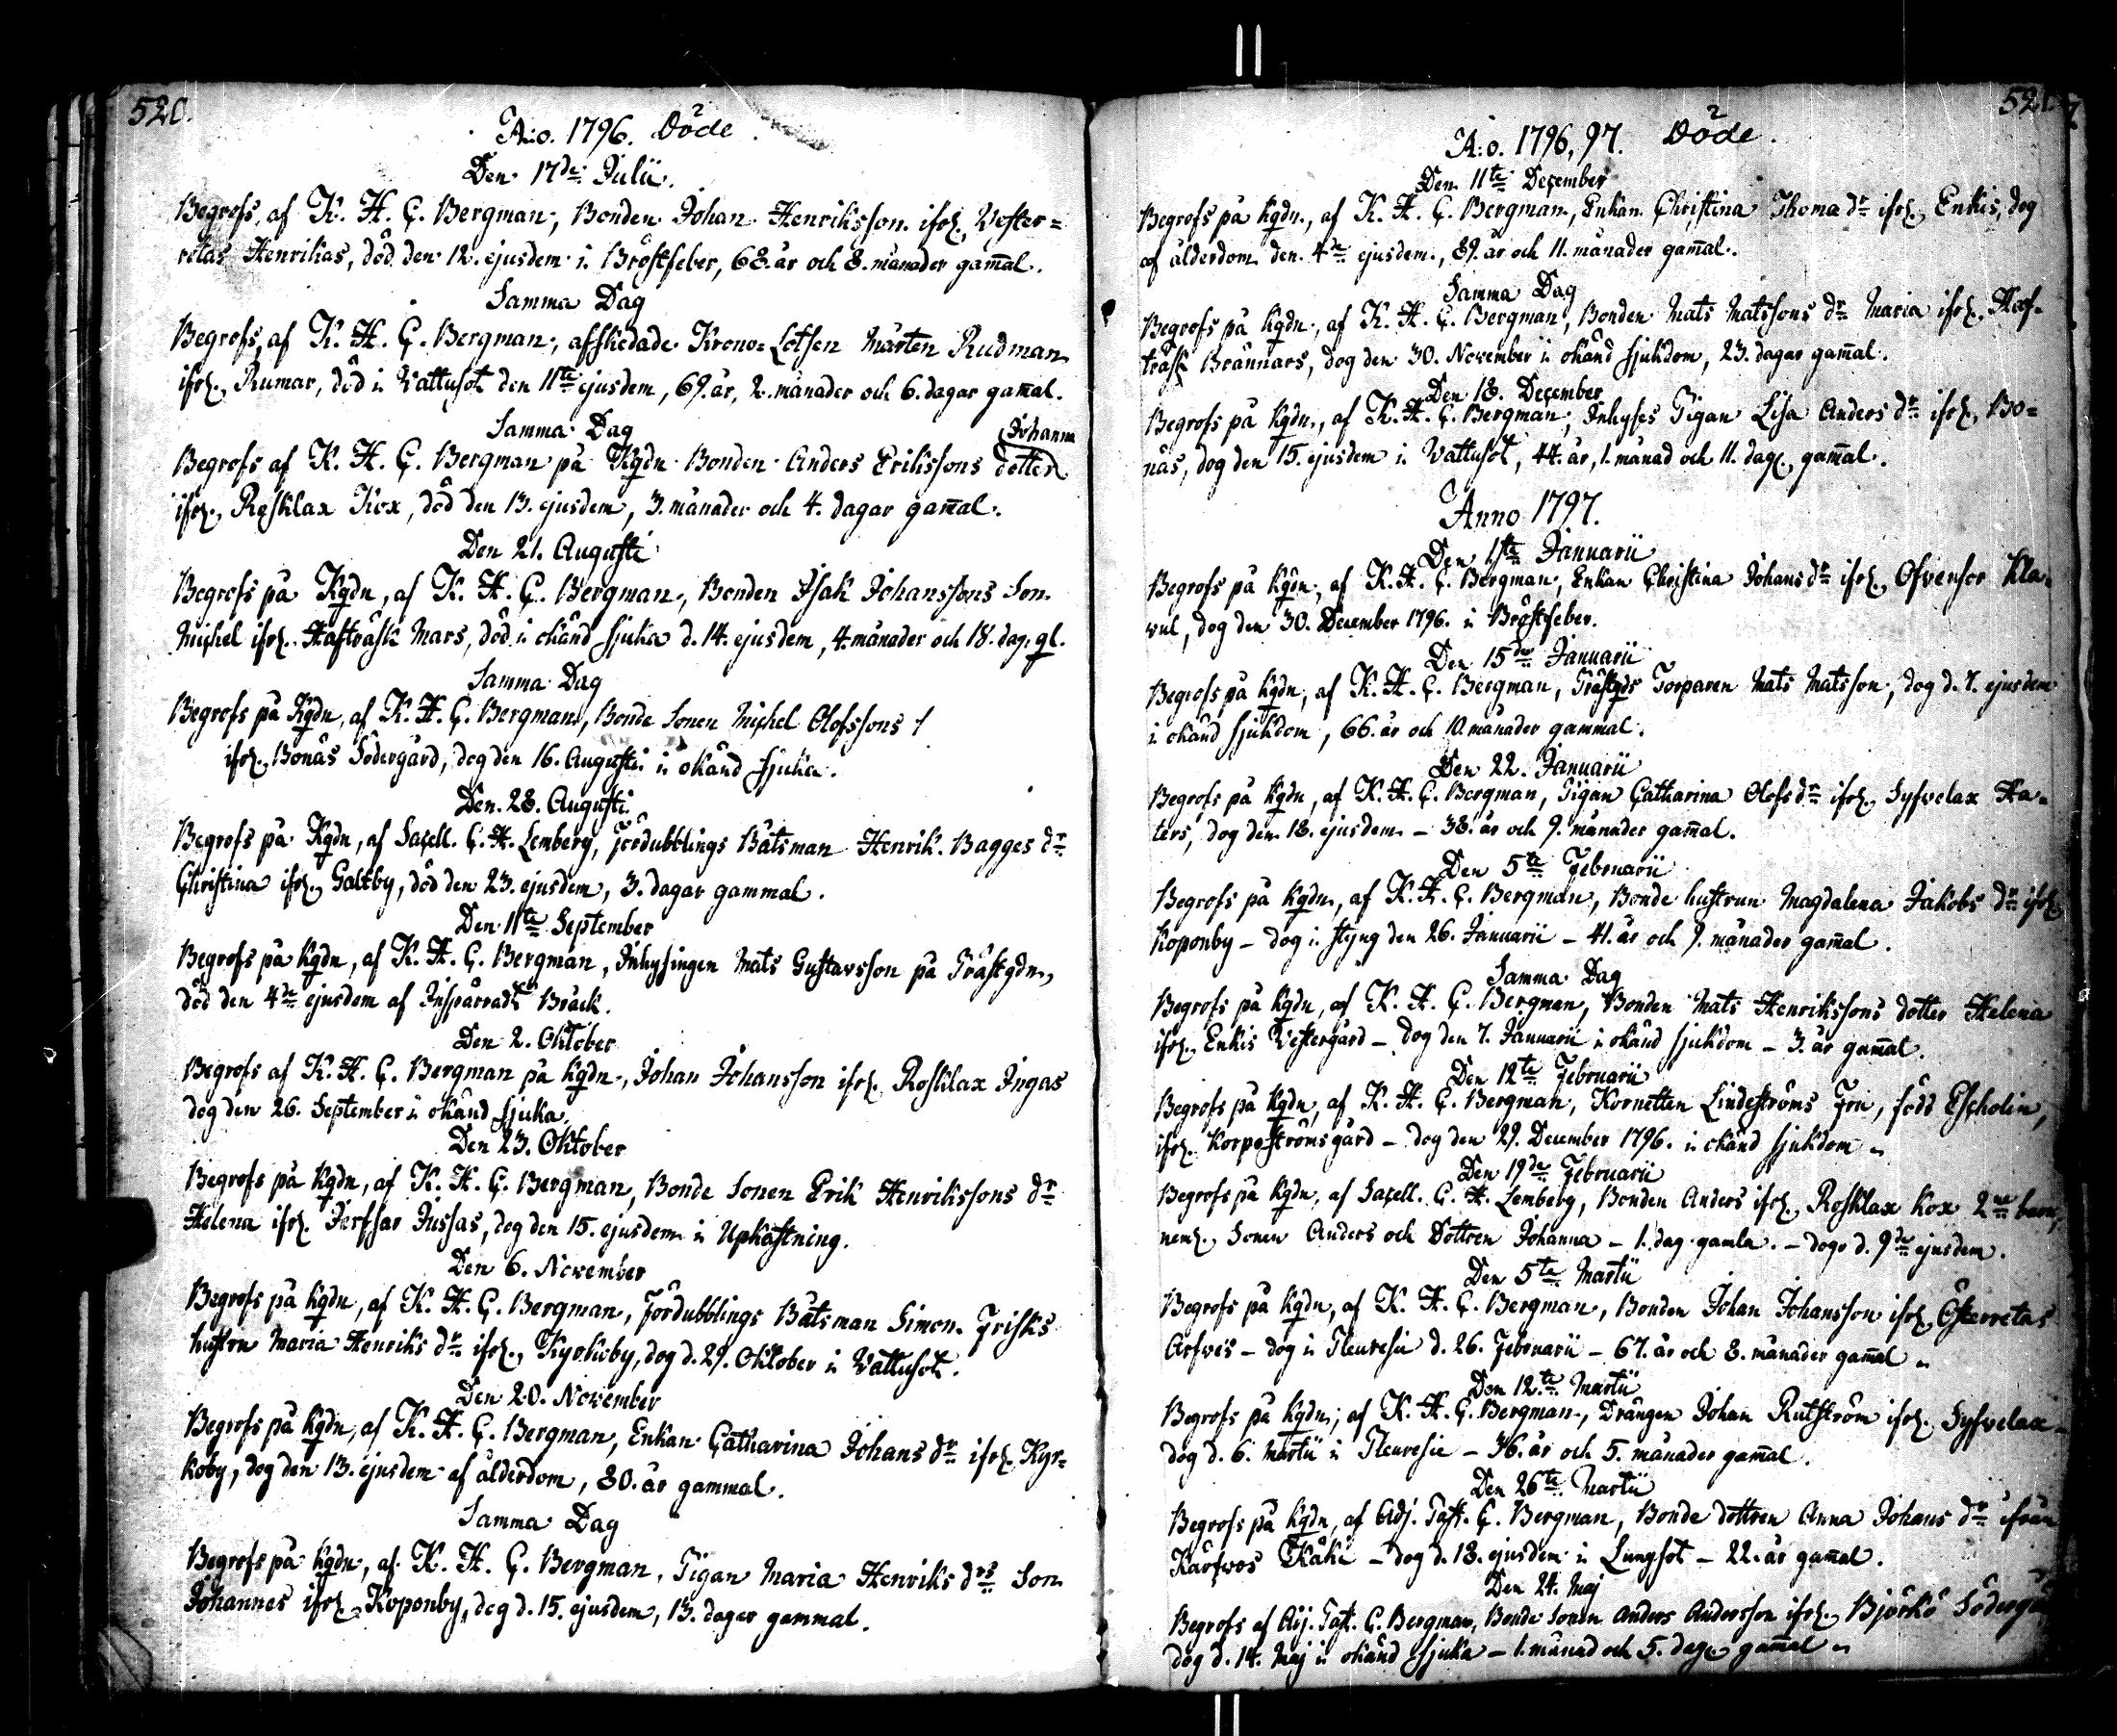 520.
A:o. 1796. Döde.
Den 17de Julii.
Begrofs, af K. H. C. Bergman, Bonden Johan Henriksson ifr., Vester=
retas Henrikas, död den 12. ejusdem i Bröstfeber, 68. år och 8. månader gam̄al.
Samma Dag
Begrofs, af K. H. C. Bergman, afskedade Krono=Lotsen Mårten Rudman
ifr. Rumar, död i Vattusot den 11te ejusdem, 69. år, 2. månader och 6. dagar gam̄al.
Samma Dag
Johanna
Begrofs af K. H. C. Bergman på Kgdn Bonden Anders Erikssons dotter
ifr. Rosklax Kox, död den 13. ejusdem, 3. månader och 4. dagar gam̄al.
Den 21. Augusti
Begrofs på Kgdn, af K. H. C. Bergman, Bonden Isak Johanssons Son
Michel ifr. Hafträsk Mars, död i okänd sjuka d. 14. ejusdem, 4. månader och 18. dag. gl.
Samma Dag
Begrofs på Kgdn, af K. H. C. Bergman, Bonde Sonen Michel Olofssons /
ifr. Bonäs Södergård, dog den 16. Augusti i okänd sjuka.
Den 28. Augusti
Begrofs på Kgdn, af Sacell. C. H. Lemberg, Fördubblings Båtsman Henrik Bagges dr
Christina ifr. Galtby, död den 23. ejusdem, 3. dagar gammal.
Den 11te September
Begrofs på Kgdn, af K. H. C. Bergman, Inhysingen Mats Gustavsson på Prästgdn,
död den 4de ejusdem af Inspärradt Bråck.
Den 2. Oktober
Begrofs af K. H. C. Bergman på Kgdn, Johan Johansson ifr. Rosklax Ingas
dog den 26. September i okänd sjuka.
Den 23. Oktober
Begrofs på Kgdn, af K. H. C. Bergman, Bonde Sonen Erik Henrikssons dr
Helena ifr. Jerfsar Jussas, dog den 15. ejusdem i Upkastning.
Den 6. November
Begrofs på Kgdn, af K. H. C. Bergman, Fördubblings Båtsman Simon Frisks
hustru Maria Henriks dr ifr. Kyrkoby, dog d. 29. Oktober i Vattusot.
Den 20. November
Begrofs på Kgdn, af K. H. C. Bergman, Enkan Catharina Johans dr ifr. Kyr=
koby, dog den 13. ejusdem af ålderdom, 80. år gammal.
Samma Dag
Begrofs på Kgdn, af K. H. C. Bergman, Pigan Maria Henriks drs Son
Johannes ifr. Koponby, dog d. 15. ejusdem, 13. dagar gammal.
A:o. 1796, 97. Döde.
Den 11te December
Begrofs på Kgdn, af K. H. C. Bergman, Enkan Christina Thoma dr ifr. Enkis, dog
af ålderdom den 4de ejusdem, 89. år och 11. månader gam̄al.
Samma Dag
Begrofs på Kgdn, af K. H. C. Bergman, Bonden Mats Matssons dr Maria ifr. Haf-
träsk Brännars, dog den 30. November i okänd sjukdom, 23. dagar gam̄al.
Den 18. December
Begrofs på Kgdn, af K. H. C. Bergman, Inhyses Pigan Lisa Anders dr ifr. Bo=
näs, dog den 15. ejusdem i Vattusot, 44. år, 1. månad och 11. dag. gam̄al.
Anno 1797.
Den 1ste Januarii
Begrofs på Kgdn, af K. H. C. Bergman, Enkan Christina Johans dr ifr. Ofvensor Kla=
vul, dog den 30. December 1796. i Bröstfeber.
Den 15de Januarii
Begrofs på Kgdn, af K. H. C. Bergman, Prästgds Torparen Mats Matsson, dog d. 7. ejusdem
i okänd sjukdom, 66. år och 10. månader gammal.
Den 22. Januarii
Begrofs på Kgdn, af K. H. C. Bergman, Pigan Catharina Olofs dr ifr. Syfvelax Ha=
ters, dog den 18. ejusdem – 38. år och 9. månader gam̄al.
Den 5te Februarii
Begrofs på Kgdn, af K. H. C. Bergman, Bonde hustrun Magdalena Jakobs dr ifr.
Koponby – dog i styng den 26. Januarii – 41. år och 9. månader gam̄al.
Samma Dag
Begrofs på Kgdn, af K. H. C. Bergman, Bonden Mats Henrikssons dotter Helena
ifr. Enkis Vestergård – dog den 7. Januarii i okänd sjukdom – 3. år gam̄al.
Den 12te Februarii
Begrofs på Kgdn, af K. H. C. Bergman, Kornetten Lindeströms Fru, född Escholin,
ifr. Korpoströmsgård – dog den 29. December 1796. i okänd sjukdom
Den 19de Februarii
Begrofs på Kgdn, af Sacell. C. H. Lemberg, Bonden Anders ifr. Rosklax Kox 2ne barn,
neml. Sonen Anders och Dottren Johanna – 1. dag gamla. – dogo d. 9de ejusdem.
Den 5te Martii
Begrofs på Kgdn, af K. H. C. Bergman, Bonden Johan Johansson ifr. Österretas
Arfvis – dog i Pleuresie d. 26. Februarii – 67. år och 8. månader gam̄al
Den 12te Martii
Begrofs på Kgdn, af K. H. C. Bergman, Drängen Johan Rutström ifr. Syfvelax –
dog d. 6. Martii i Pleuresie – 36. år och 5. månader gam̄al.
Den 26te Martii
Begrofs på Kgdn, af Adj. Past. C. Bergman, Bonde dottren Anna Johans dr ifrån
Kärfvos Kåki – dog d. 18. ejusdem i Lungsot – 22. år gam̄al.
Den 24. Maj
Begrofs af Adj. Past. C. Bergman, Bonde Sonen Anders Andersson ifr. Björkö
dog d. 14. Maj i okänd sjuka – 1. månad och 5. dag. gam̄al